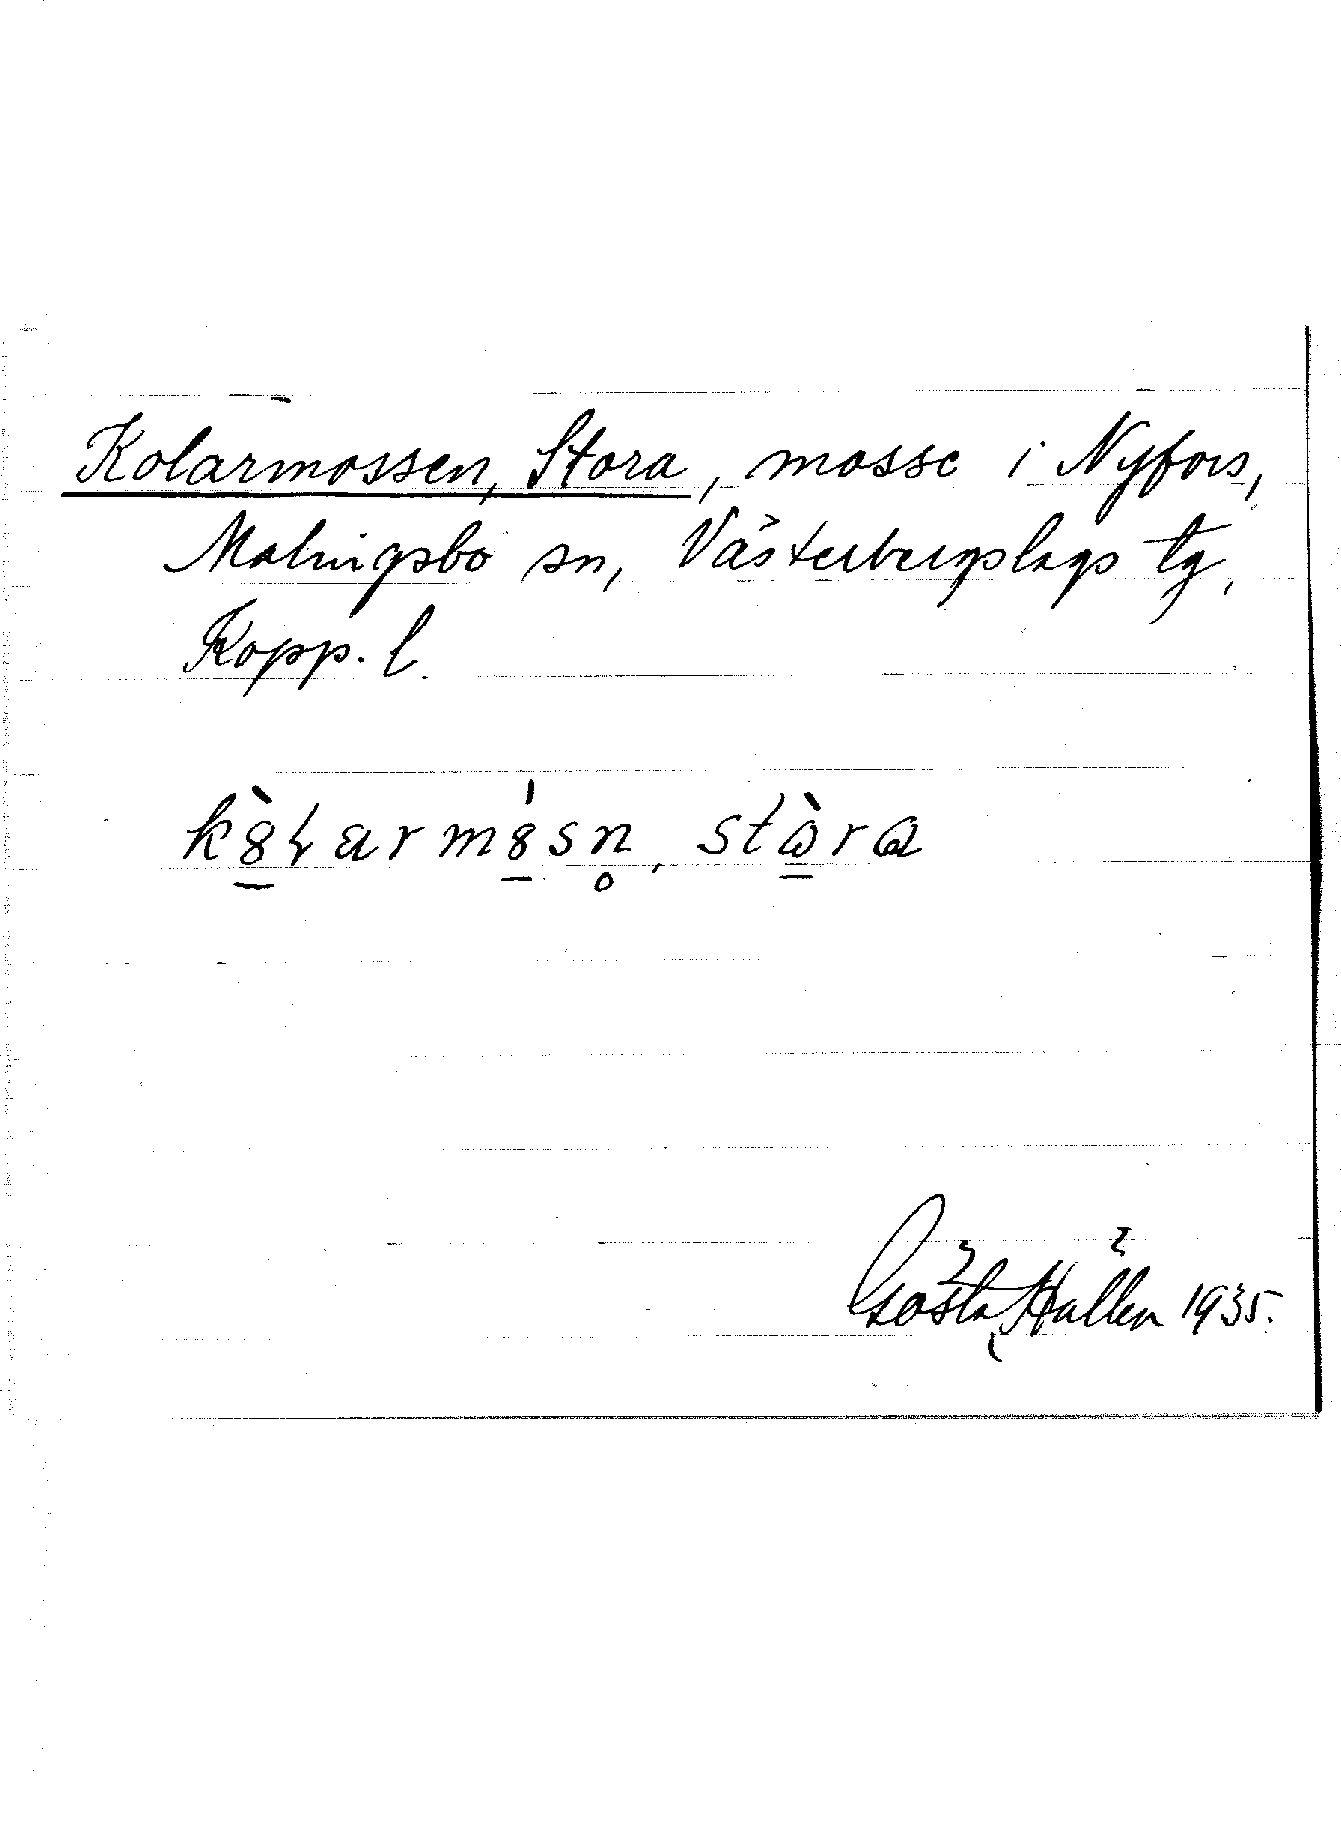 Kolarmossen, Stora, mosse i Nyfors,
Malingsbo sn, Västerbergslags tg,
Kopp. l.
kȣ̀ɫarmȣ́sn̥, stɷ̀ra
Gösta Hallén 1935.